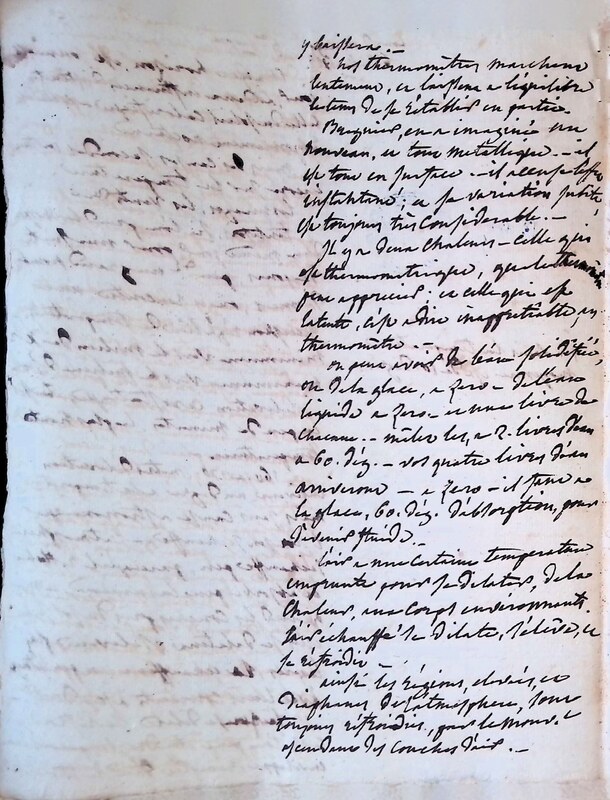 y baissera. —
nos thermomètres marchent
lentement, et laissent a l'équilibre
le tems de se rétablir en partie.
Breguet, en a imaginé un
nouveau, et tout métallique. — il
est tout en surface — il accuse l'effet
instantané; et sa variation subite
est toujours très considérable. —
Il y a deux chaleurs — celle qui
est thermométrique, que le thermomètre
peut apprécier; et celle qui est
latente, c'est a dire inappréciable, au
thermomètre. —
on peut avoir de l'eau solidifiée,
ou de la glace, a zero — de l'eau
liquide a zero — et une livre de
chacune. — mêlez les, a 2. livres d'eau
a 60. dég. — vos quatre livres d'eau
arriveront — a zero — il faut a
la glace, 60. dég. d'absorption, pour
devenir fluide. —
l'air a une certaine temperature
emprunte pour se dilater, de la
chaleur, aux corps environnants.
l'air échauffé se dilate, s'élève, et
se refroidit —
ainsi les régions, élevées, et
diaphanes de l'atmosphere, sont
toujours refroidies, par le mouv.t
ascendant des couches d'air. —